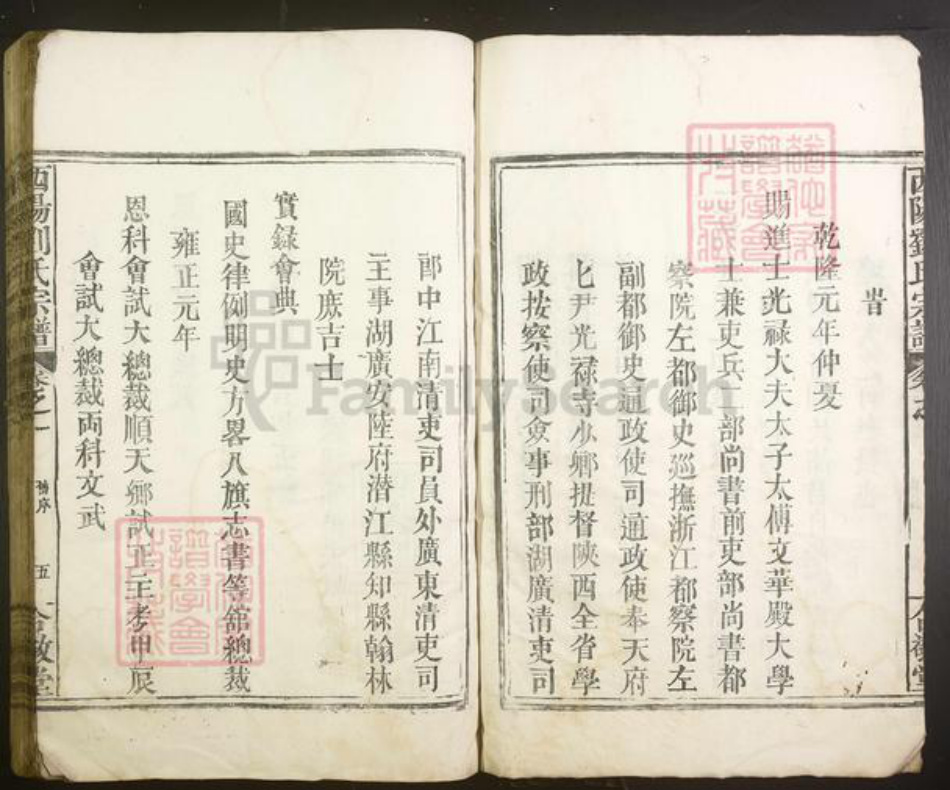 酉陽劉氏宗譜
昔
乾隆元年仲夏
賜進士光祿大夫太子太傅文華殿大學
士兼吏兵二部尚書前吏部尚書都
察院左都御史巡撫浙江都察院左
副都御史通政使司通政使奉天府
尹光祿寺少卿提督陝西全省學
政按察使司僉事刑部湖廣清吏司
郎中江南清吏司員外廣東清吏司
主事湖廣安陸府潛江縣知縣翰林
院庶吉士
實録會典
國史律例明史方畧八旗志書等舘總裁
雍正元年
恩科會試大總裁順天鄉試正主考甲辰
會試大總裁両科文武
酉陽劉氏宗譜
卷之一
舊序
五
FamilySearch